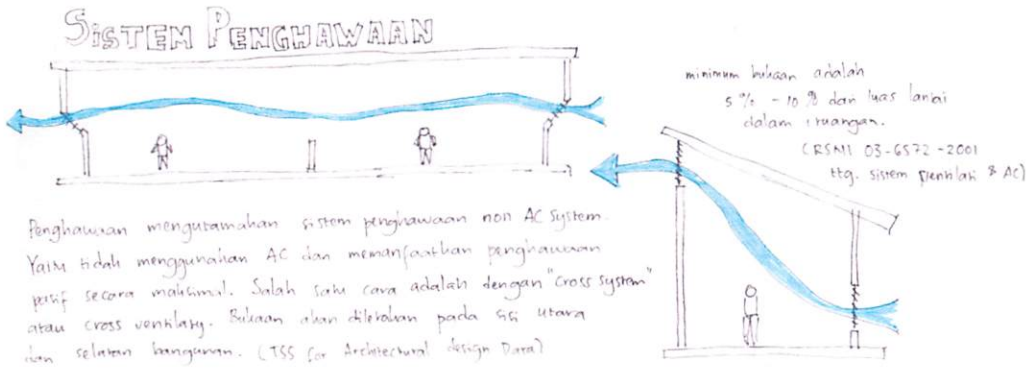 SISTEM PENGHAWAAN
minimum bukaan adalah
5% - 10% dari luas lantai
dalam ruangan.
(RSNI 03-6572-2001
ttg. sistem ventilasi & AC)
Penghawaan mengutamakan sistem penghawaan non AC System.
Yaitu tidak menggunakan AC dan memanfaatkan penghawaan
pasif secara maksimal. Salah satu cara adalah dengan "Cross system"
atau cross ventilasy. Bukaan akan diletakan pada sisi utara
dan selatan bangunan. (TSS for Architectural design Data)